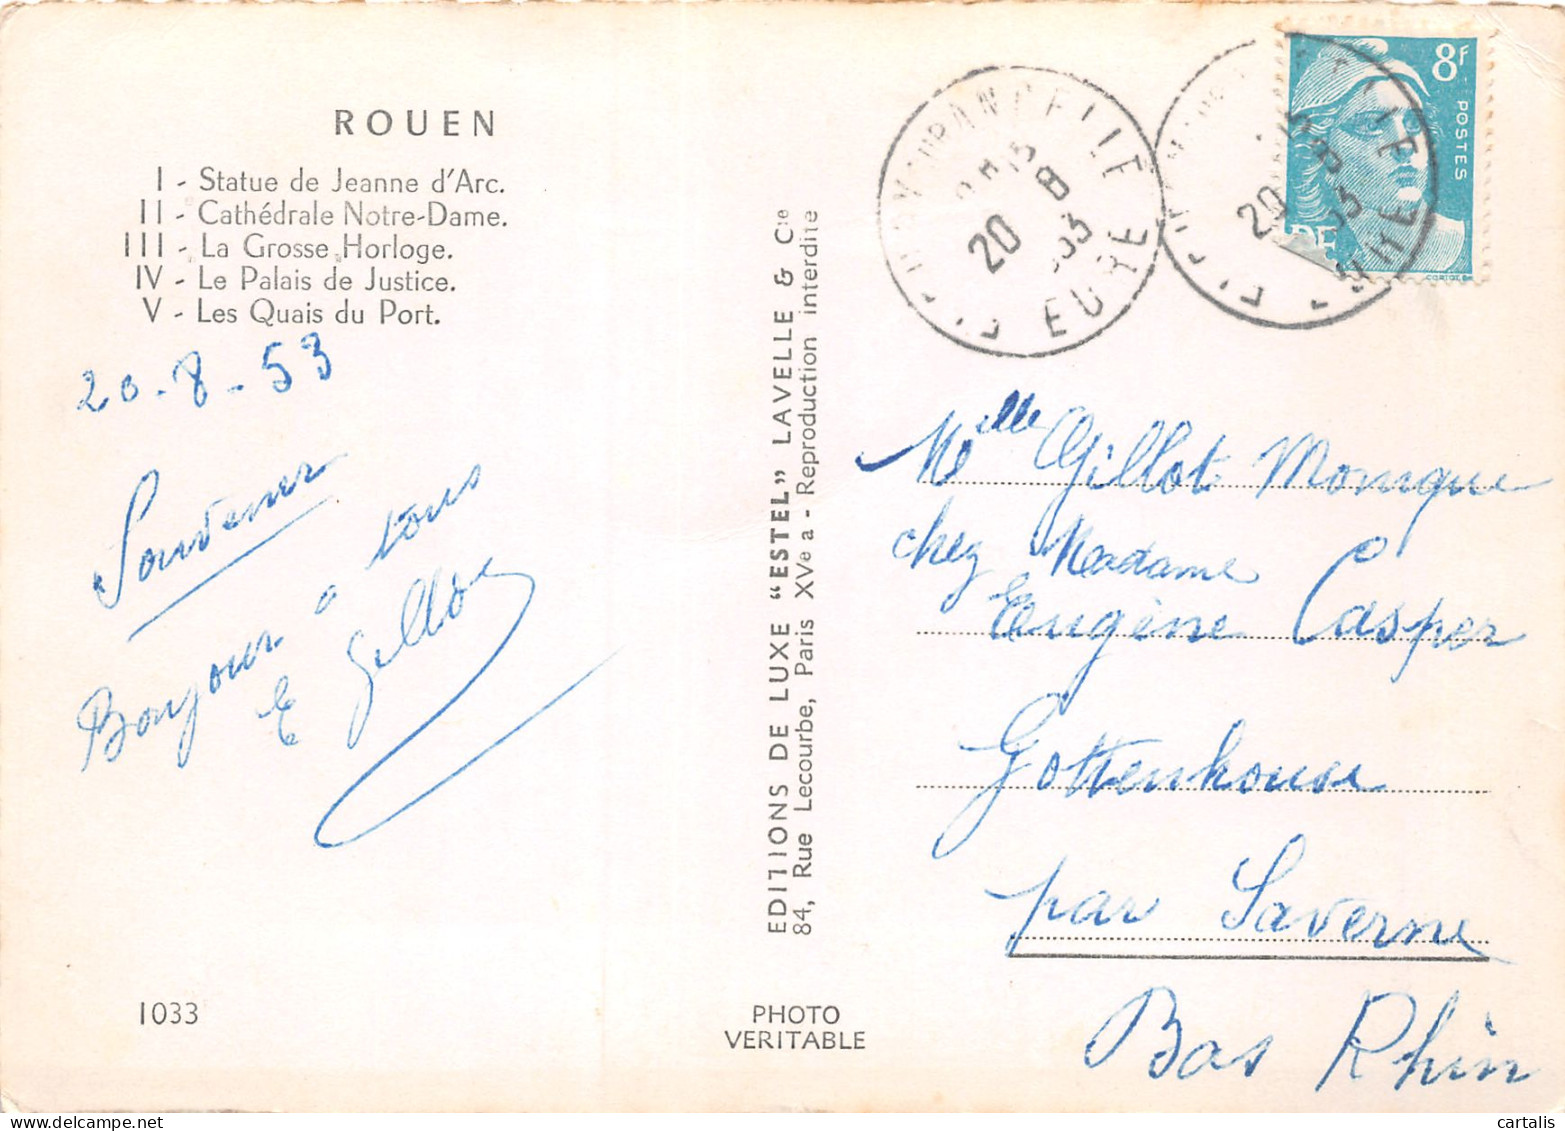 ROUEN
I - Statue de Jeanne d'Arc.
II - Cathédrale Notre-Dame.
III - La Grosse Horloge.
IV - Le Palais de Justice.
V - Les Quais du Port.
20-8-53
Souvenir
Bonjour à tous
E Gillot
1033
EDITIONS DE LUXE "ESTEL" LAVELLE & Cie
84, Rue Lecourbe, Paris XVe a - Reproduction interdite
PHOTO
VERITABLE
20 8
53
EURE
20 8
53
EURE
8F
POSTES
Melle Gillot Monique
chez Madame
Eugène Casper
Gottenhouse
par Saverne
Bas Rhin
cartalis
www.delcampe.net